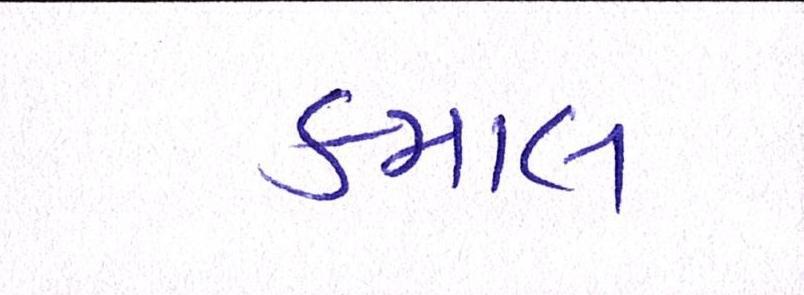 કમાલ